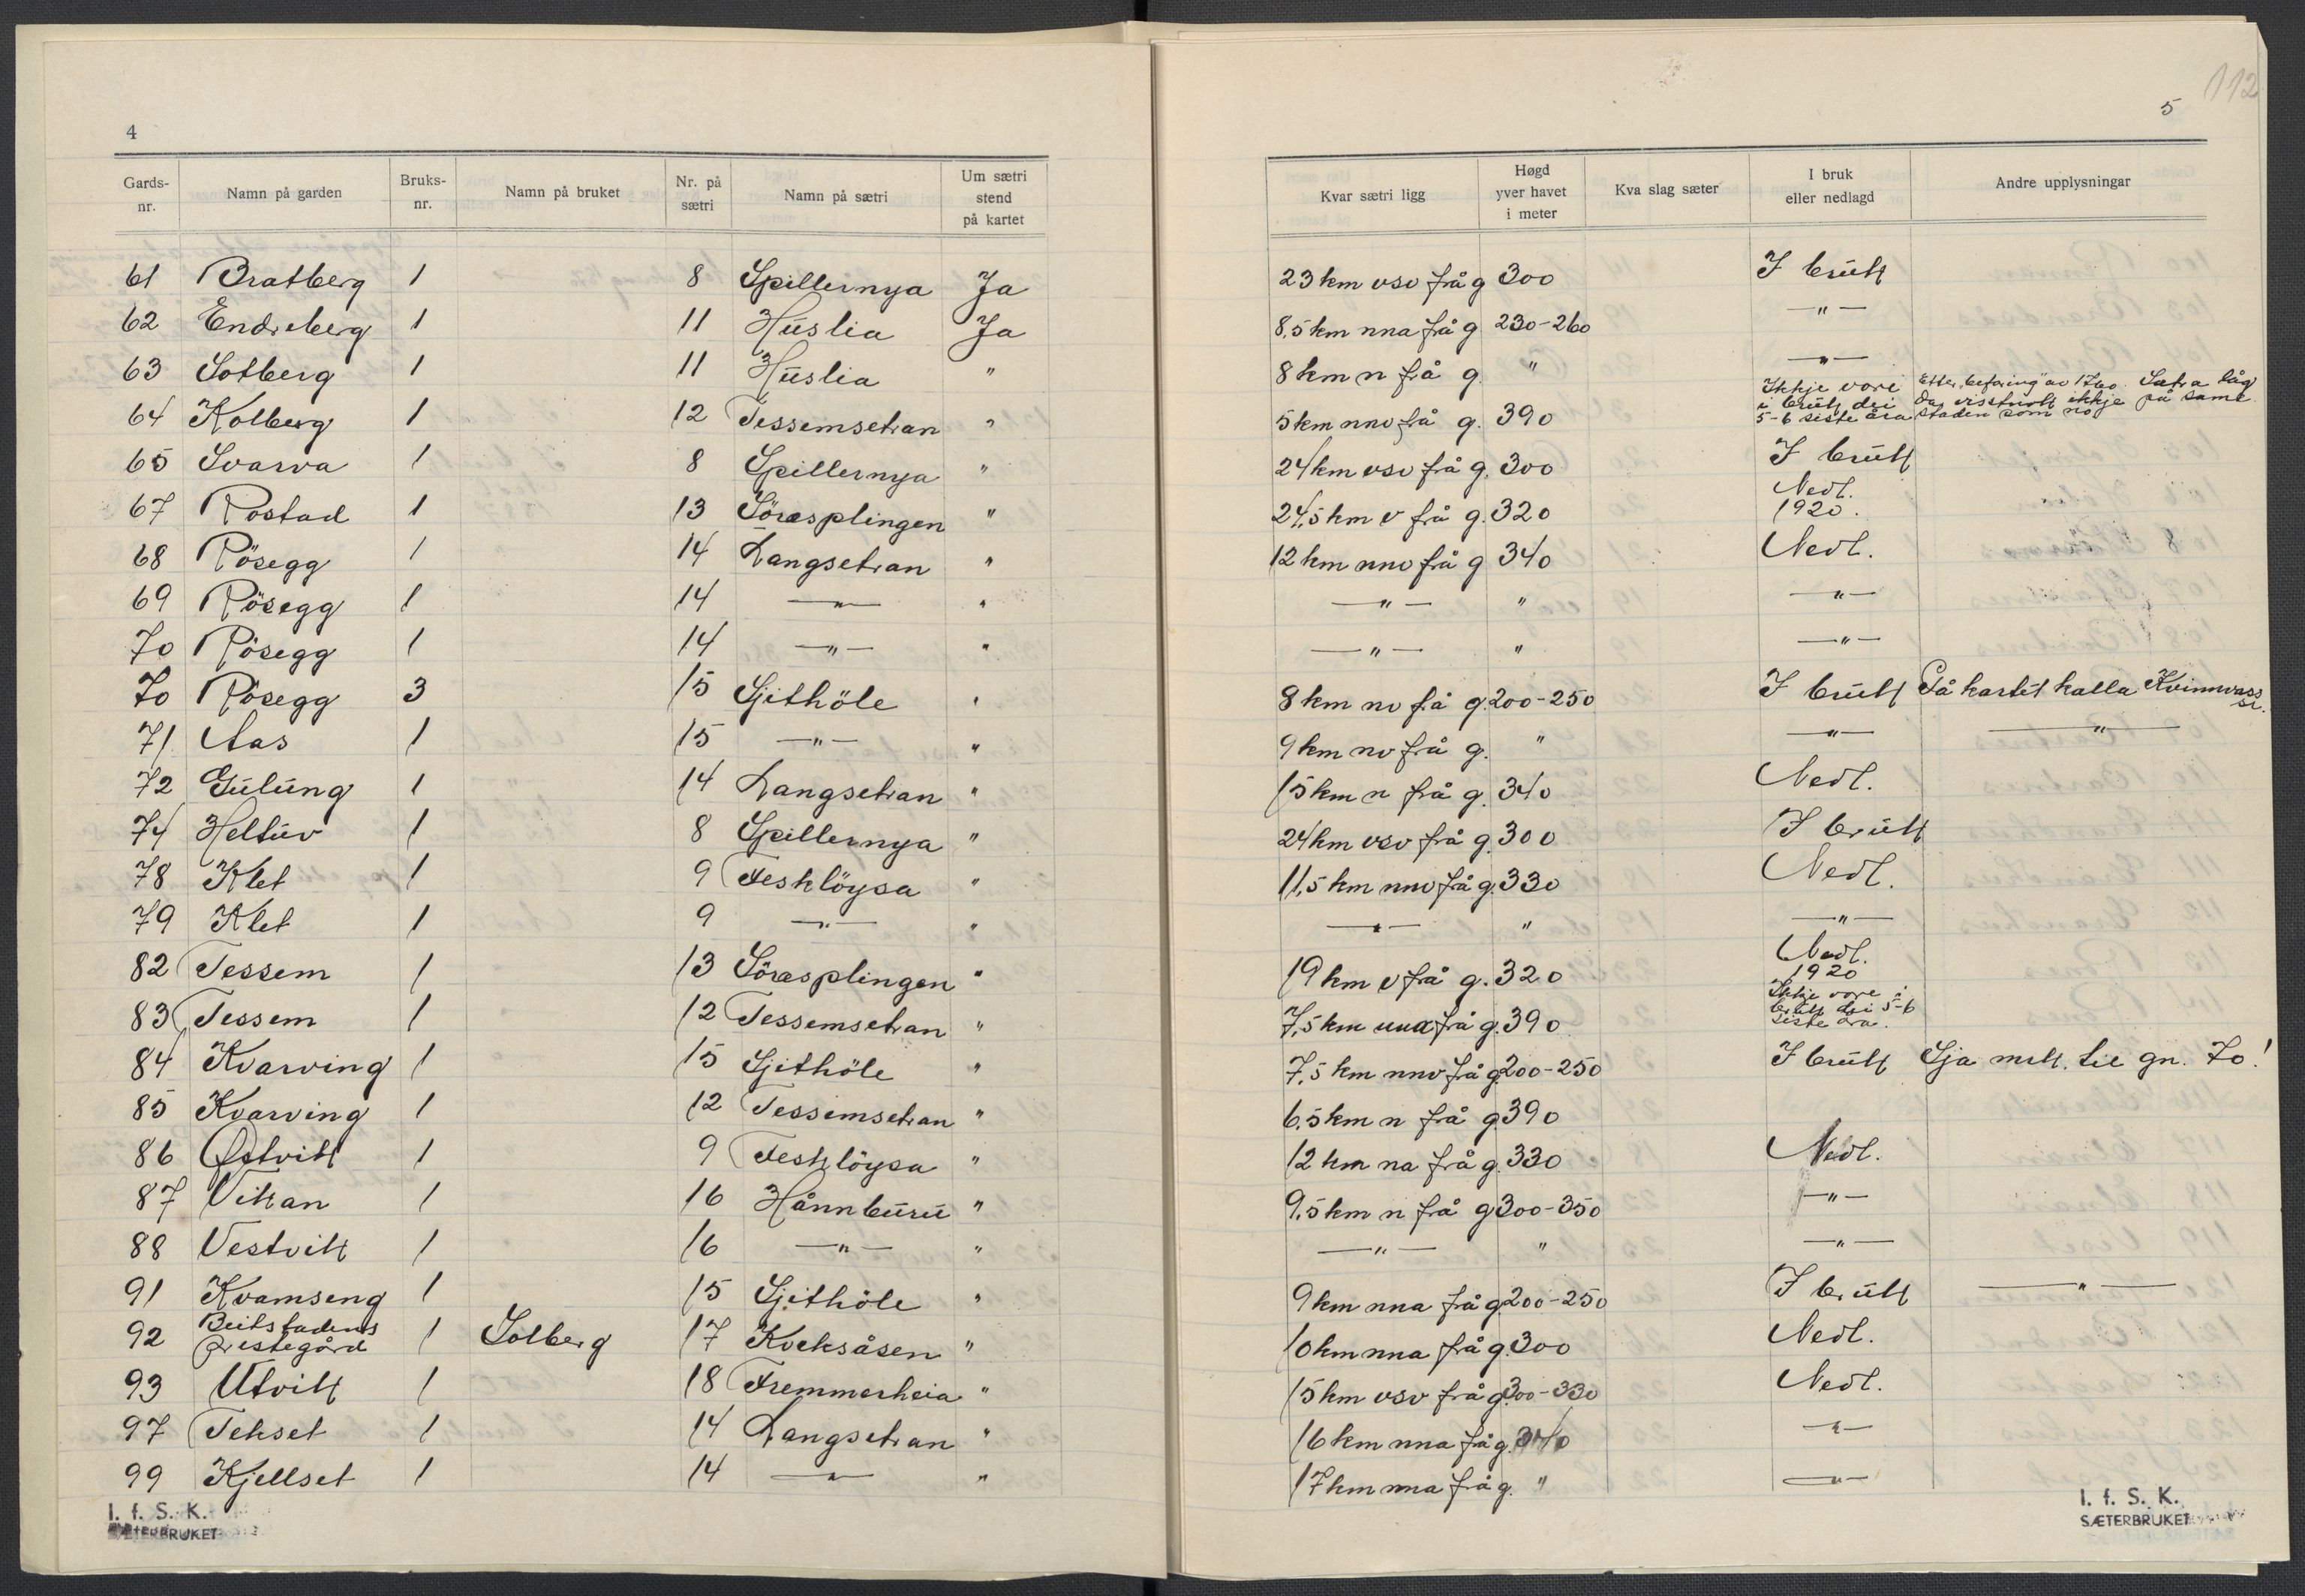 4
Gards-nr. Namn på garden Bruks-nr. Namn på bruket Nr. på sætri Namn på sætri Um sætri stend på kartet
61 Bratberg 1 8 Spillernya Ja
62 Endreberg 1 11 Huslia Ja
63 Solberg 1 11 Huslia "
64 Kolberg 1 12 Tessemsetran "
65 Svarva 1 8 Spillernya "
67 Rostad 1 13 Sörasplingen "
68 Rösegg 1 14 Langsetran "
69 Rösegg 1 14 —"— "
70 Rösegg 1 14 —"— "
70 Rösegg 3 15 Sjithöle "
71 Aas 1 15 —"— "
72 Gulung 1 14 Langsetran "
74 Heltuv 1 8 Spillernya "
78 Klet 1 9 Fesklöysa "
79 Klet 1 9 —"— "
82 Tessem 1 13 Sörasplingen "
83 Tessem 1 12 Tessemsetran "
84 Kvarving 1 15 Sjithöle "
85 Kvarving 1 12 Tessemsetran "
86 Østvik 1 9 Fesklöysa "
87 Vikan 1 16 Hånnburu "
88 Vestvik 1 16 —"— "
91 Kvamseng 1 15 Sjithöle "
92 Beitstadens prestegård 1 Solberg 17 Kveksåsen "
93 Utvik 1 18 Fremmerheia "
97 Tekset 1 14 Langsetran "
99 Kjellset 1 14 —"— "
I. f. S. K.
SÆTERBRUKET
112
5
Kvar sætri ligg Høgd yver havet i meter Kva slag sæter I bruk eller nedlagd Andre upplysningar
23 km vsv frå g 300 I bruk
8,5 km nna frå g 230-260 —"—
8 km n frå g. " —"—
5 km nnv frå g. 390 Ikkje vore i bruk dei 5-6 siste åra Etter "befaring" av 1760. Sætra låg da visstnok ikkje på same staden som no
24 km vsv frå g. 300 I bruk
24,5 km v frå g. 320 Nedl. 1920.
12 km nnv frå g 340 Nedl.
—"— " —"—
—"— " —"—
8 km nv frå g. 200-250 I bruk På kartet kalla Kvinnvass sr.
9 km nv frå g. " —"— —"—
15 km n frå g. 340 Nedl.
24 km vsv frå g. 300 I bruk
11,5 km nnv frå g. 330 Nedl.
—"— " —"—
19 km v frå g. 320 Nedl. 1920
7,5 km nna frå g. 390 Ikkje vore i bruk dei 5-6 siste åra.
7,5 km nnv frå g. 200-250 I bruk Sja mrk. til gn. 70!
6,5 km n frå g. 390
12 km na frå g. 330 Nedl.
9,5 km n frå g 300-350 —"—
—"— " —"—
9 km nna frå g. 200-250 I bruk —"—
10 km nna frå g. 300 Nedl.
15 km vsv frå g. 300-330 Nedl.
16 km nna frå g. 340 —"—
17 km nna frå g. " —"—
I. f. S. K.
SÆTERBRUKET